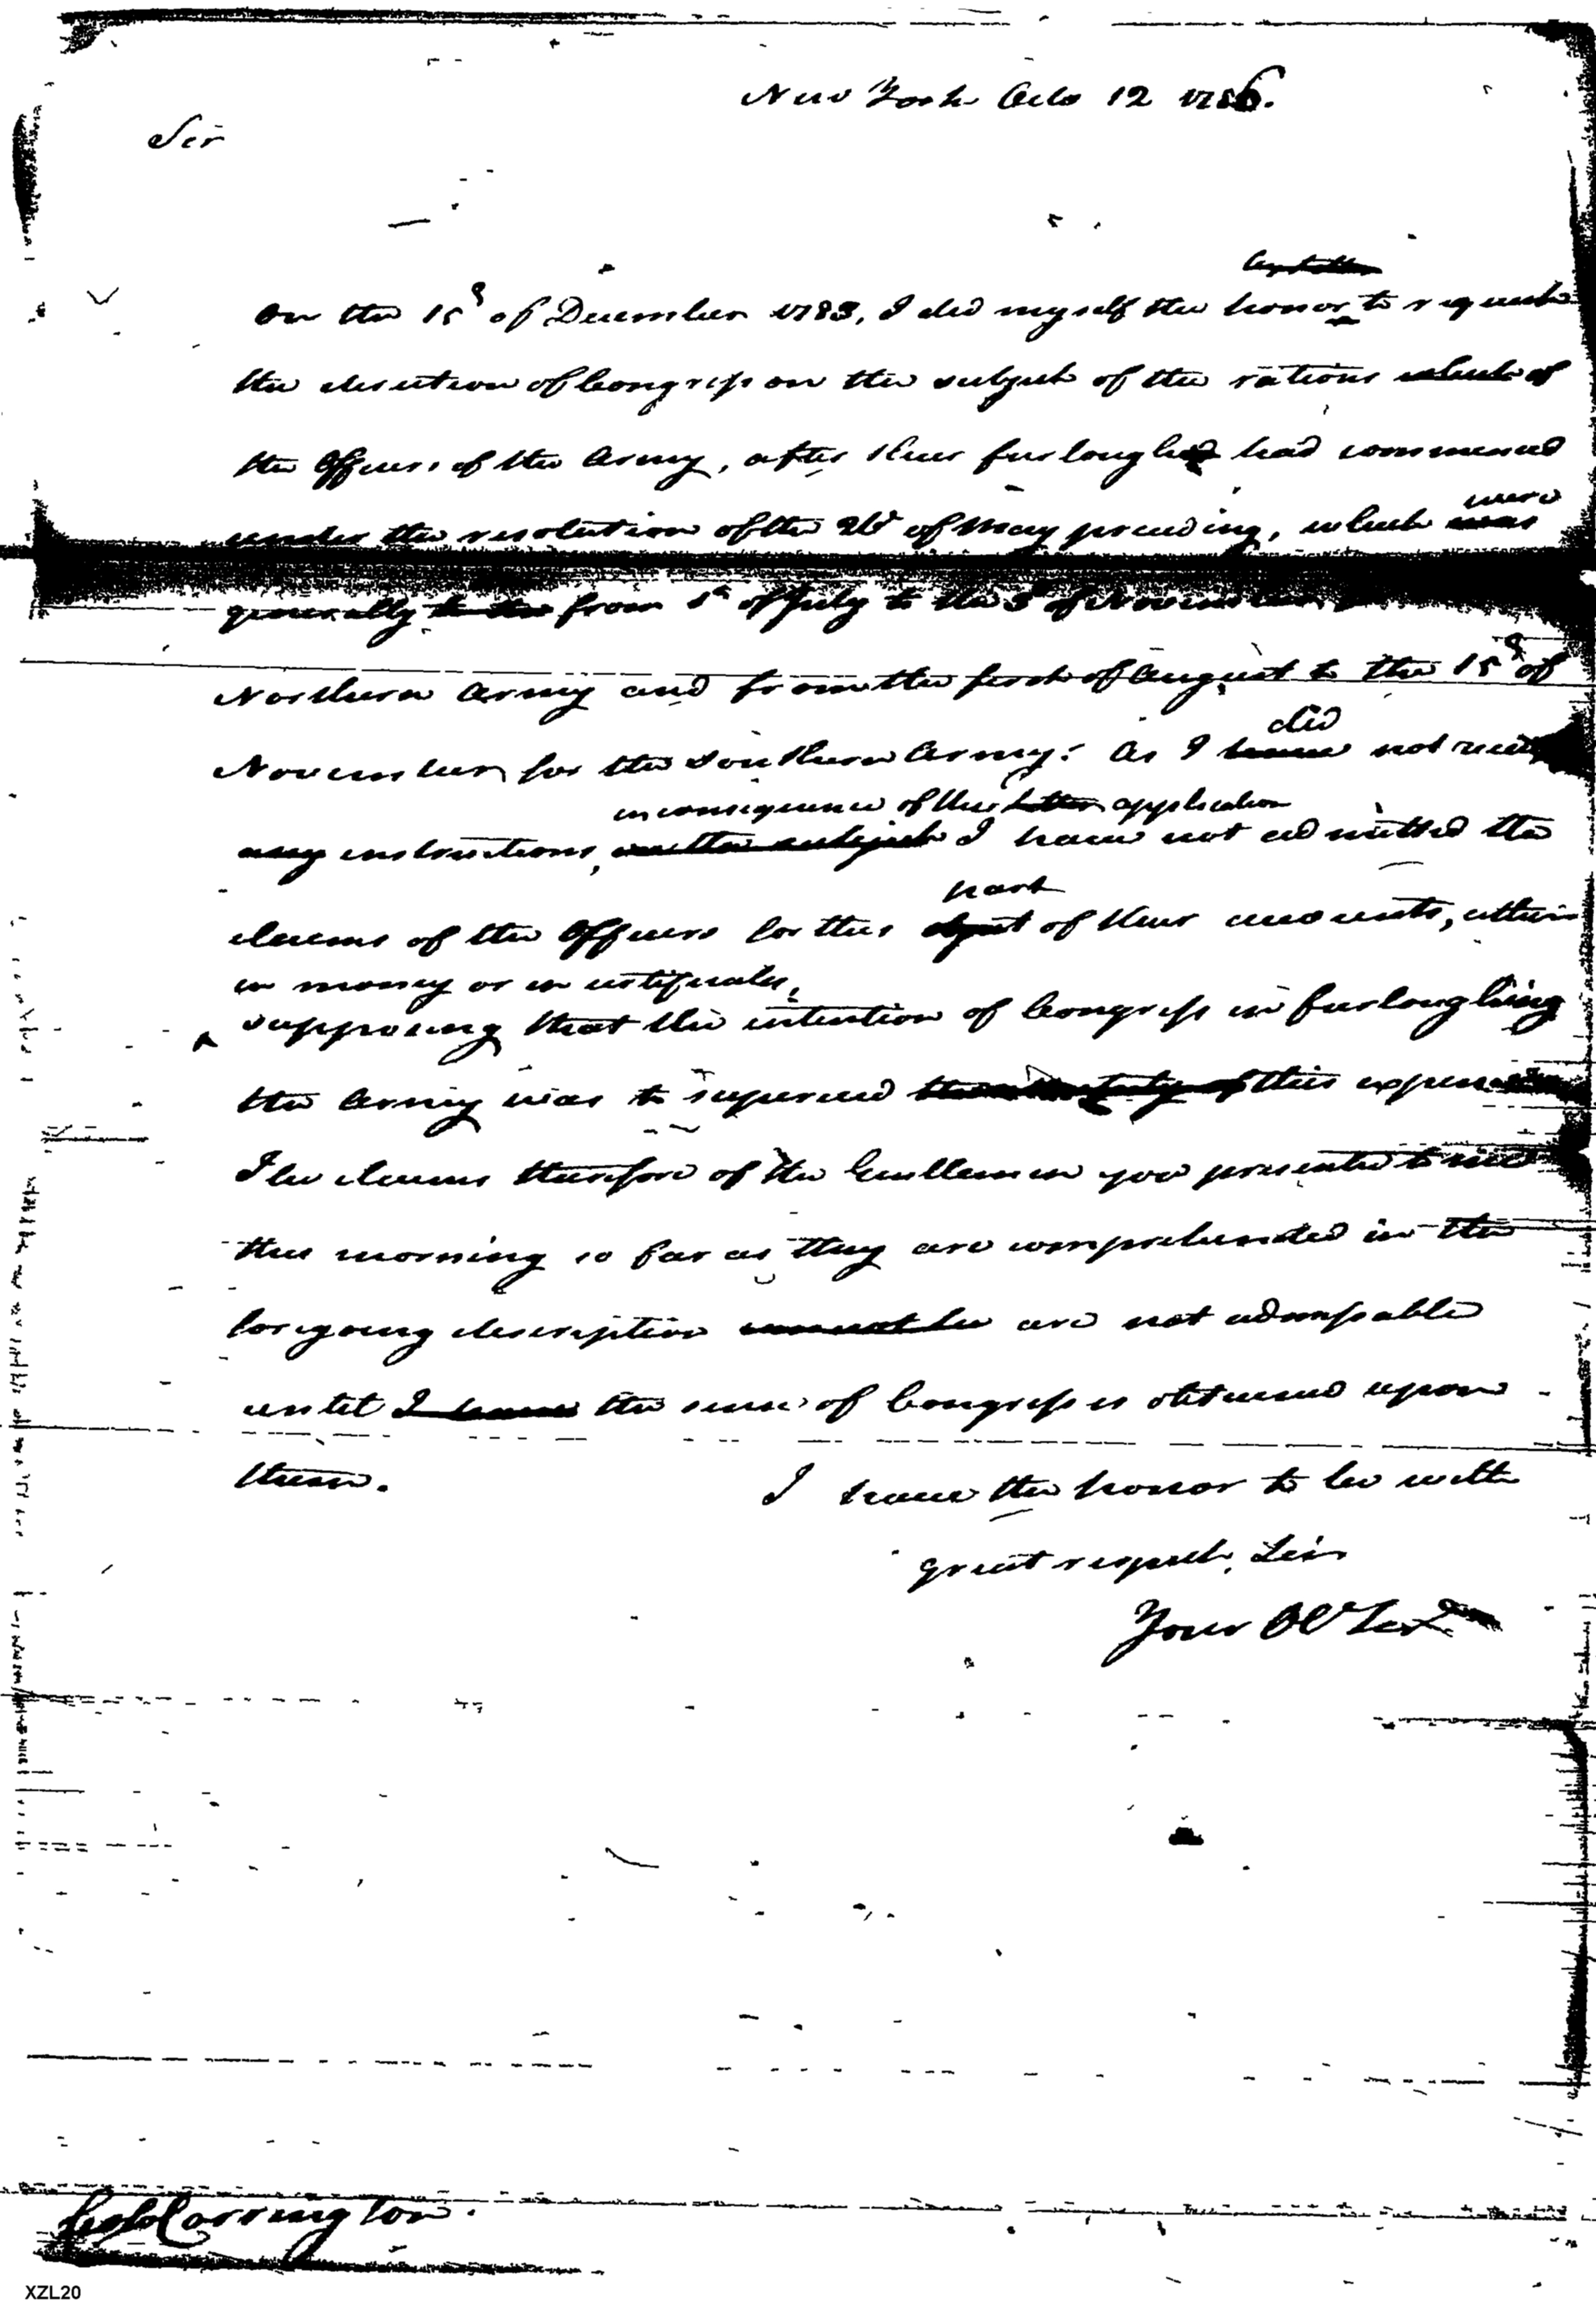 New York Octo 12 1786.
Sir
by letter
On the 15th of December 1783, I did myself the honor to request
the direction of Congress on the subject of the rations which of
the Officers of the Army, after their furloughs had commenced
were
under the resolution of the 26 of May preceding, which was
generally from 1st of July to the 3d of November
Northern Army and from the first of August to the 15th of
did
November for the Southern Army: As I have not received
in consequence of this letter application
any instructions, on the subject I have not admitted the
part
claims of the Officers for this object of their accounts, either
in money or in certificates,
supposing that the intention of Congress in furloughing
the Army was to supercede this expence
The claims therefore of the Gentlemen you presented to me
this morning so far as they are comprehended in the
forgoing description cannot be are not admissable
until I have the sense of Congress is obtained upon
them. I have the honor to be with
great respect, Sir
Your Ob Ser
Col Carrington.
XZL20